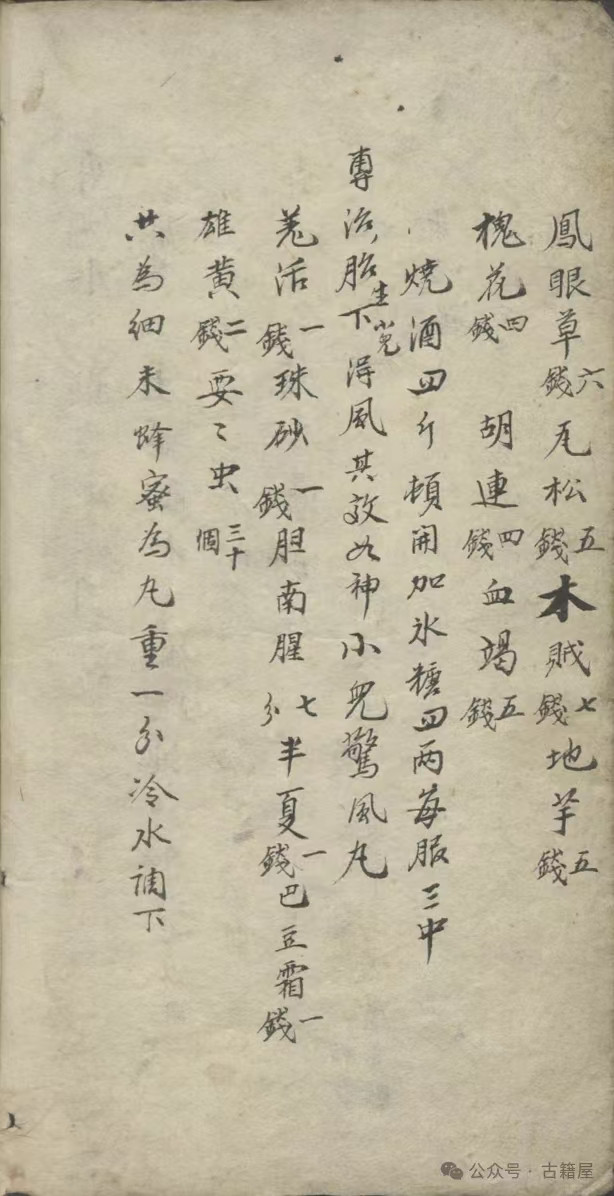 鳳眼草六錢瓦松五錢木賊七錢地芋五錢
槐花四錢 胡連四錢血竭五錢
燒酒四斤頓開加氷糖四兩每服三中
專治胎生下小兒得風其效如神小兒驚風丸
羌活一錢珠砂一錢胆南腥七分半夏一錢巴豆霜一錢
雄黃二錢要〻虫三十個
共為細末蜂蜜為丸重一分冷水調下
公众号·古籍屋